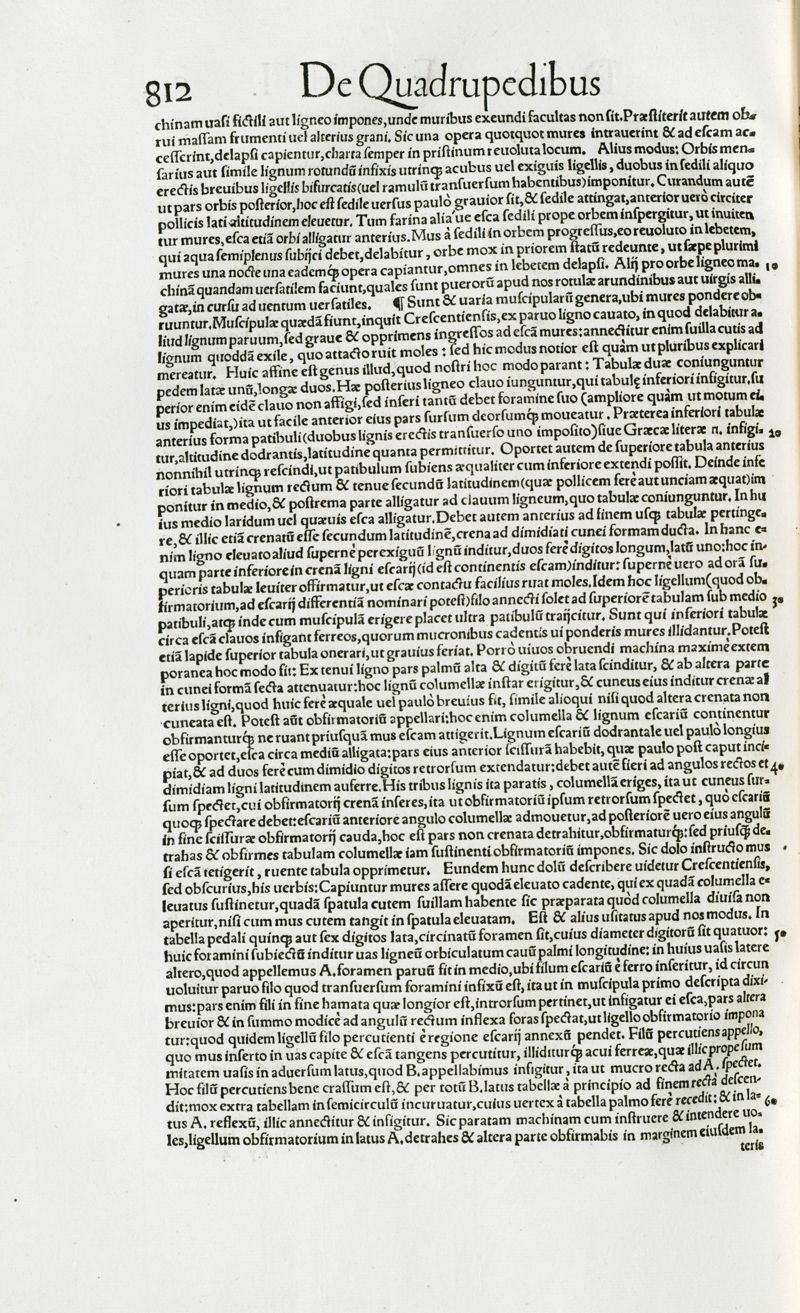 812 De Quadrupedibus
chinam uasi fictili aut ligneo impones,unde muribus exeundi facultas non sit.Præstiterit autem ob-
rui massam frumenti uel alterius grani. Sic una opera quotquot mures intrauerint & ad escam ac-
cesserint,delapsi capientur,charta semper in pristinum reuoluta locum. Alius modus: Orbis men-
sarius aut simile lignum rotundũ infixis utrinq; acubus uel exiguis ligellis, duobus in sedili aliquo
erectis breuibus ligellis bifurcatis(uel ramulũ transuersum habentibus)imponitur. Curandum autẽ
ut pars orbis posterior,hoc est sedile uersus paulò grauior sit,& sedile attingat,anterior uerò circiter
pollicis lati altitudinem eleuetur. Tum farina alia ue esca sedili prope orbem inspergitur, ut inuiten
tur mures,esca etiã orbi alligatur anterius.Mus à sedili in orbem progressus,eo reuoluto in lebetem,
qui aqua semiplenus subijci debet,delabitur, orbe mox in priorem statũ redeunte, ut sæpe plurimi
mures una nocte una eademq́; opera capiantur,omnes in lebetem delapsi. Alij pro orbe ligneo ma- 10
chinã quandam uersatilem faciunt,quales sunt puerorũ apud nos rotulæ arundinibus aut uirgis alli-
gatæ,in cursu ad uentum uersatiles. ¶ Sunt & uaria muscipularũ genera,ubi mures pondere ob-
ruuntur.Muscipulæ quædã fiunt,inquit Crescentiensis,ex paruo ligno cauato, in quod delabitur a-
liud lignum paruum,sed graue & opprimens ingressos ad escã mures:annectitur enim suilla cutis ad
lignum quoddã exile, quo attacto ruit moles : sed hic modus notior est quàm ut pluribus explicari
mereatur. Huic affine est genus illud,quod nostri hoc modo parant : Tabulæ duæ coniunguntur
pedem latæ unũ,longæ duos.Hæ posterius ligneo clauo iunguntur,qui tabulę inferiori infigitur,su
perior enim eidẽ clauo non affigi,sed inseri tantũ debet foramine suo (ampliore quàm ut motum ei-
us impediat,)ita ut facile anterior eius pars sursum deorsumq́; moueatur. Præterea inferiori tabulæ
anterius forma patibuli(duobus lignis erectis transuerso uno imposito)siue Græcæ literæ π. infigi- 20
tur,altitudine dodrantis,latitudine quanta permittitur. Oportet autem de superiore tabula anterius
nonnihil utrinq; rescindi,ut patibulum subiens æqualiter cum inferiore extendi possit. Deinde infe
riori tabulæ lignum rectum & tenue secundũ latitudinem(quæ pollicem ferè aut unciam æquat)im
ponitur in medio,& postrema parte alligatur ad clauum ligneum,quo tabulæ coniunguntur. In hu
ius medio laridum uel quæuis esca alligatur.Debet autem anterius ad finem usq; tabulæ pertinge-
re,& illic etiã crenatũ esse secundum latitudinẽ,crena ad dimidiati cunei formam ducta. In hanc e-
nim ligno eleuato aliud supernè perexiguũ lignũ inditur,duos ferè digitos longum,latũ uno:hoc in-
quam parte inferiore in crenã ligni escarij(id est continentis escam)inditur: supernè uero ad orã su-
perioris tabulæ leuiter offirmatur,ut escæ contactu facilius ruat moles.Idem hoc ligellum(quod ob-
firmatorium,ad escarij differentiã nominari potest)filo annecti solet ad superiorẽ tabulam sub medio 30
patibuli,atq; inde cum muscipulã erigere placet ultra patibulũ traijcitur. Sunt qui inferiori tabulæ
circa escã clauos infigant ferreos,quorum mucronibus cadentis ui ponderis mures illidantur. Potest
etiã lapide superior tabula onerari,ut grauius feriat. Porrò uiuos obruendi machina maximè extem
poranea hoc modo fit: Ex tenui ligno pars palmũ alta & digitũ ferè lata scinditur, & ab altera parte
in cunei formã secta attenuatur:hoc lignũ columellæ instar erigitur,& cuneus eius inditur crenæ al
terius ligni,quod huic ferè æquale uel paulò breuius sit, simile alioqui nisi quod altera crenata non
cuneata est. Potest aũt obfirmatoriũ appellari:hoc enim columella & lignum escariũ continentur
obfirmanturq́; ne ruant priusquã mus escam attigerit.Lignum escariũ dodrantale uel paulò longius
esse oportet,esca circa mediũ alligata:pars eius anterior scissurã habebit,quæ paulo post caput inci-
piat,& ad duos ferè cum dimidio digitos retrorsum extendatur:debet autẽ fieri ad angulos rectos et 40
dimidiam ligni latitudinem auferre.His tribus lignis ita paratis, columellã eriges,ita ut cuneus sur-
sum spectet,cui obfirmatorij crenã inseres,ita ut obfirmatoriũ ipsum retrorsum spectet, quò escariũ
quoq; spectare debet:escariũ anteriore angulo columellæ admouetur,ad posteriorẽ uero eius angulũ
in fine scissuræ obfirmatorij cauda,hoc est pars non crenata detrahitur,obfirmaturq́;:sed priusq̃ de-
trahas & obfirmes tabulam columellæ iam sustinenti obfirmatoriũ impones. Sic dolo instructo mus
si escã tetigerit, ruente tabula opprimetur. Eundem hunc dolũ describere uidetur Crescentiensis,
sed obscurius,his uerbis:Capiuntur mures assere quodã eleuato cadente, qui ex quadã columella e-
leuatus sustinetur,quadã spatula cutem suillam habente sic præparata quod columella diuisa non
aperitur,nisi cum mus cutem tangit in spatula eleuatam. Est & alius usitatus apud nos modus. In
tabella pedali quinq; aut sex digitos lata,circinatũ foramen sit,cuius diameter digitorũ sit quatuor: 50
huic foramini subiectũ inditur uas ligneũ orbiculatum cauũ palmi longitudine: in huius uasis latere
altero,quod appellemus A.foramen paruũ fit in medio,ubi filum escariũ è ferro inseritur, id circun
uoluitur paruo filo quod transuersum foramini infixũ est, ita ut in muscipula primo descripta dixi-
mus:pars enim fili in fine hamata quæ longior est,introrsum pertinet,ut infigatur ei esca,pars altera
breuior & in summo modicè ad angulũ rectum inflexa foras spectat,ut ligello obfirmatorio impona
tur:quod quidem ligellũ filo percutienti è regione escarij annexũ pendet. Filũ percutiens appello,
quo mus inserto in uas capite & escã tangens percutitur, illiditurq́; acui ferreæ,quæ illic prope sum
mitatem uasis in aduersum latus,quod B.appellabimus infigitur, ita ut mucro recta ad A. spectet.
Hoc filũ percutiens bene crassum est,& per totũ B.latus tabellæ à principio ad finem rectà descen-
dit:mox extra tabellam in semicirculũ incuruatur,cuius uertex à tabella palmo ferè recedit: & in la- 60
tus A. reflexũ, illic annectitur & infigitur. Sic paratam machinam cum instruere & intendere uo-
les,ligellum obfirmatorium in latus A.detrahes & altera parte obfirmabis in marginem eiusdem la-
teris